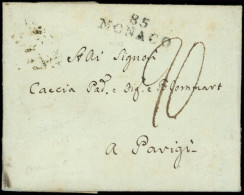 85
MONACO
10
Alli Signori
Caccia Pad.e e Fig.o e Blommart
a Parigi